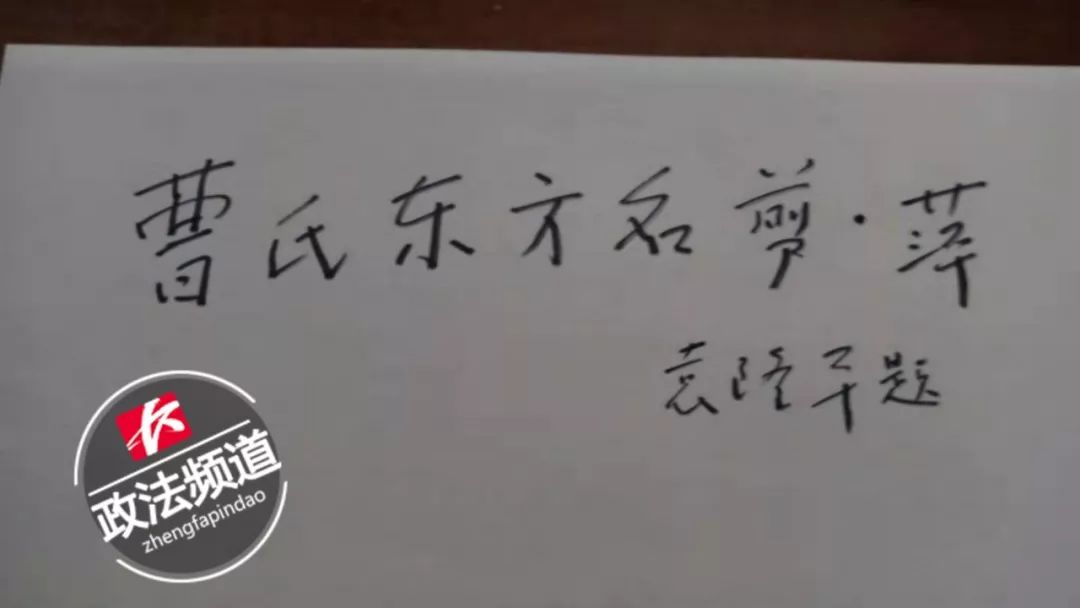 曹氏东方名剪·萍
袁隆平题
政法频道
zhengfapindao